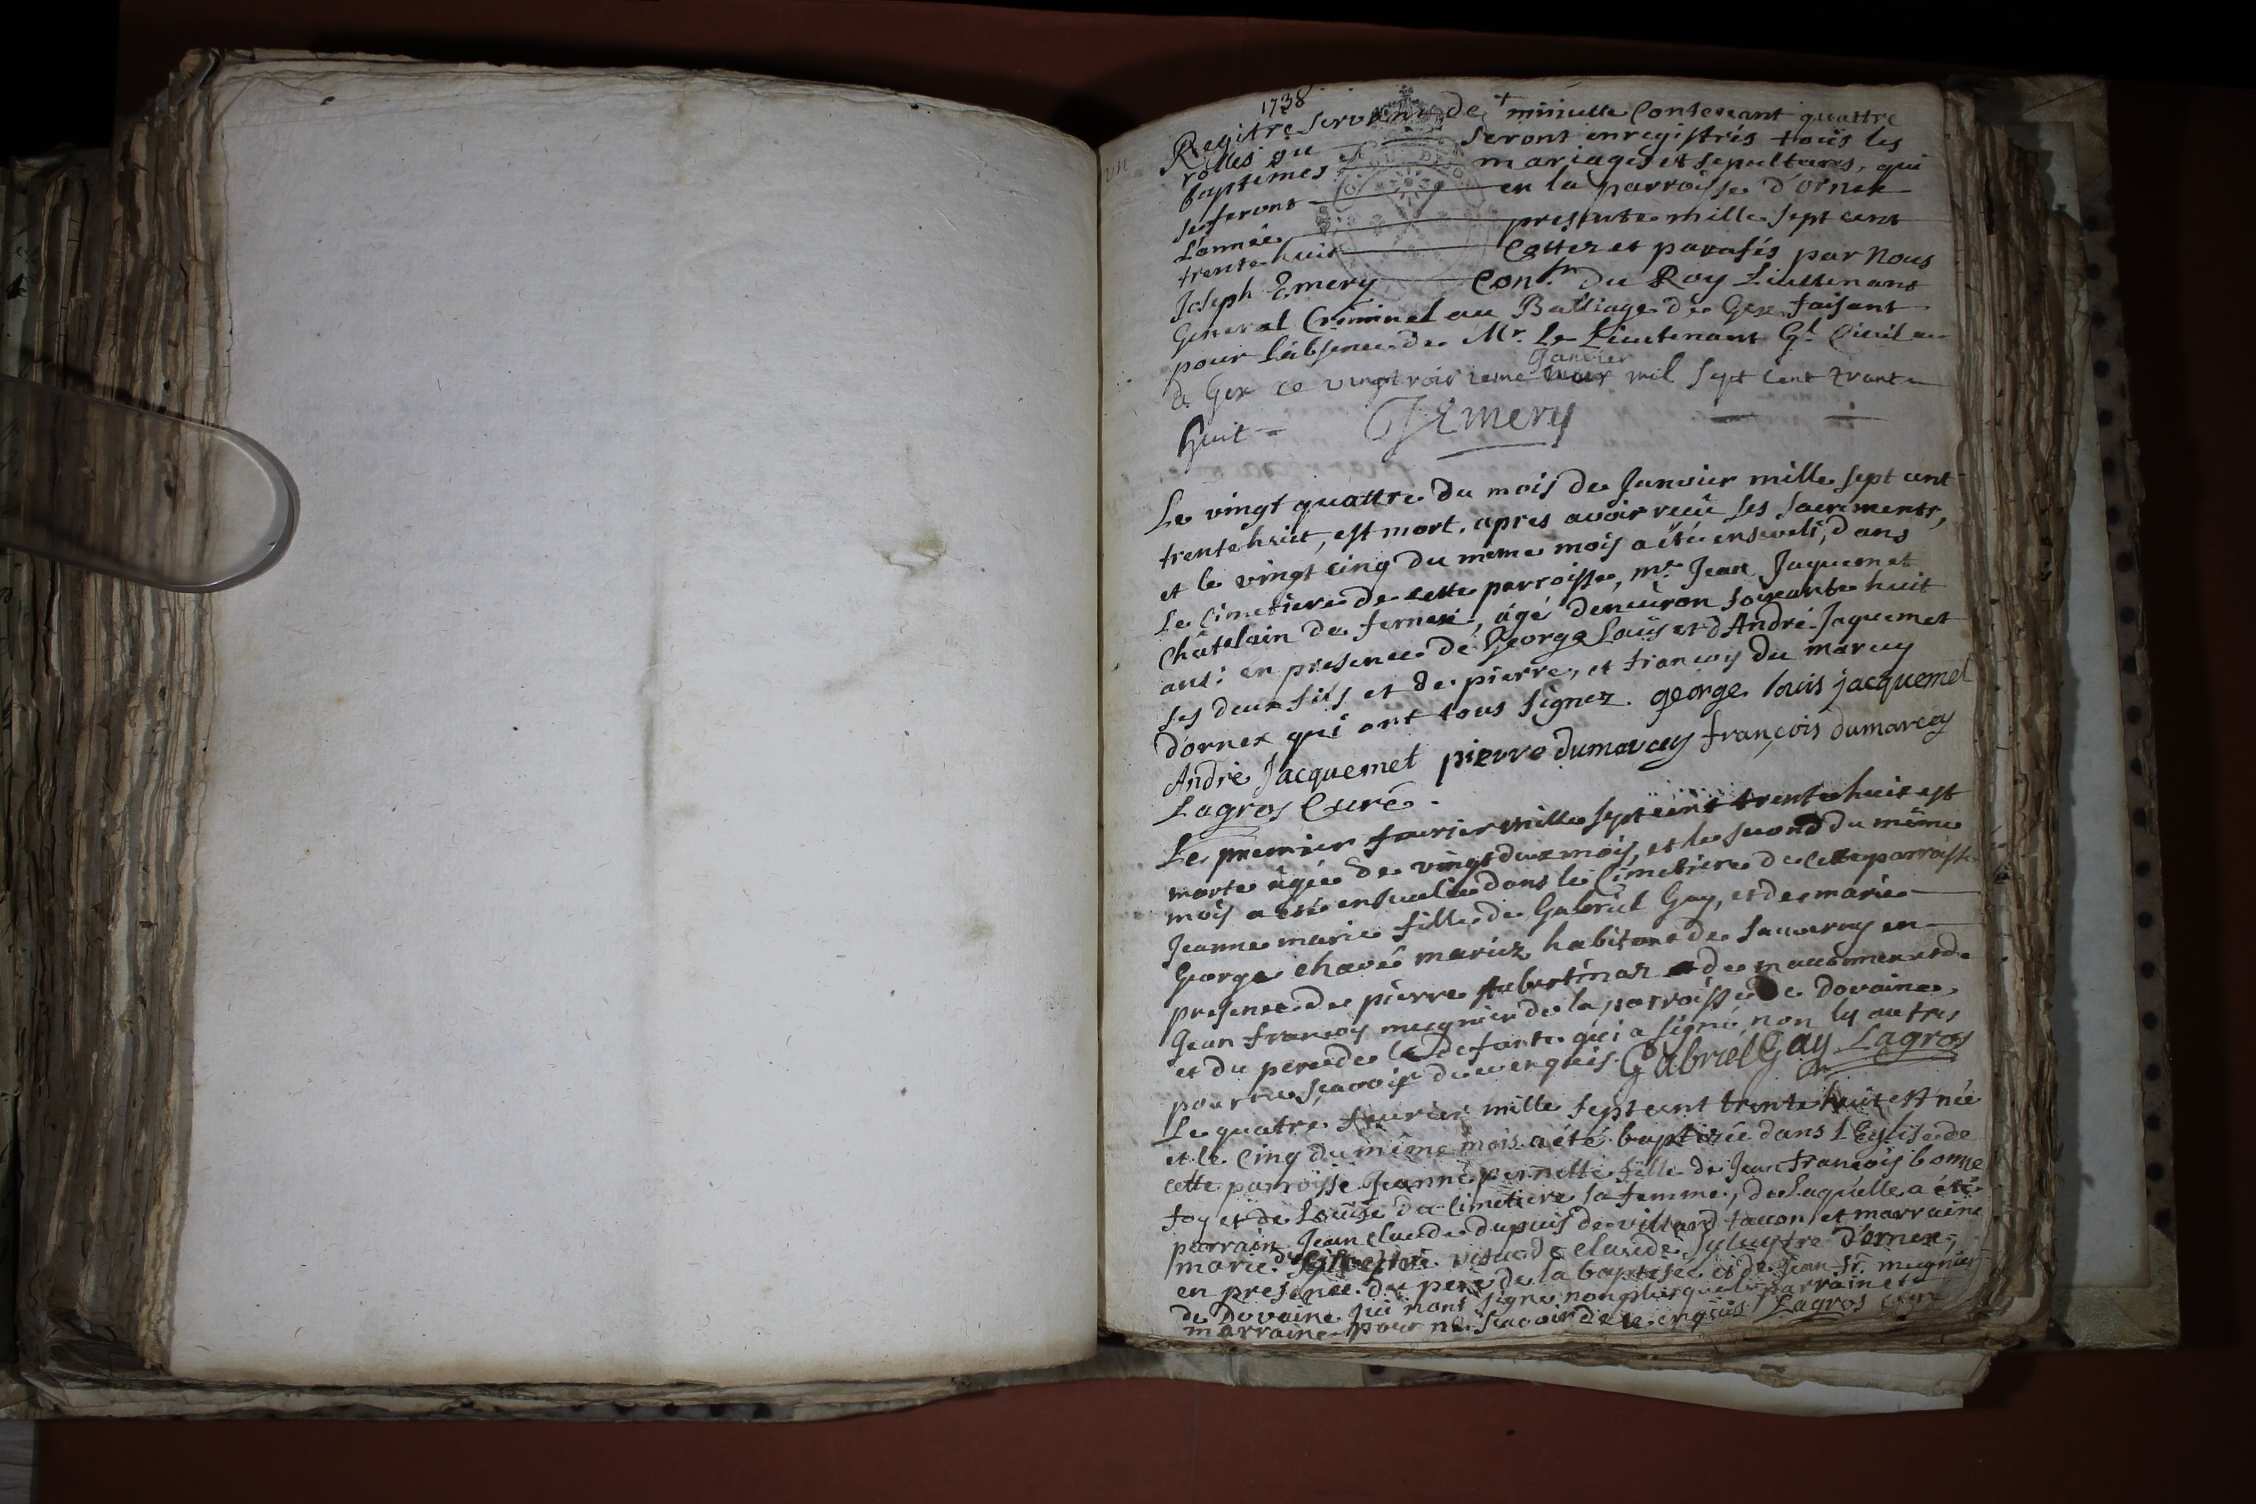 1738
Registre servant de minutte Contenant quattre
rolles ou seront enregistrés tous les
baptemes mariages et sepultures, qui
se feront en la parroisse d'ornex
L'année presente mille sept cent
trente huit Cottez et parafés par Nous
Joseph Emery Con.er du Roy Lieutenant
General Criminel au Balliage de Gex faisant
pour l'absence de Mr. Le Lieutenant Gl. Civil
a Gex ce vingtroisieme Janvier mil sept cent trante
huit JEmery
Le vingt quattre du mois de Janvier mille sept cent
trente huit, est mort, apres avoir receü ses sacrements,
et le vingt cinq du meme mois a été enseveli, dans
Le Cimetiere de cette parroisse, mr. Jean Jaquemet
Châtelain de fernex, âgé d'environ soixante huit
ans: en presence de George Loüis et d'André Jaquemet
ses deux fils et de pierre, et francois du marcey
d'ornex qui ont tous signez. george louis jacquemet
André Jacquemet pierre dumarcey françois dumarcey
Lagros Curé.
Le premier fevrier mille sept cent trente huit est
morte âgée de vingt deux mois, et le second du même
mois a été ensevelie dans le Cimetiere de cette parroisse
Jeanne marie fille de Gabriel Gay, et de marie
George chavé mariez habitans de sauverny en
presence de pierre de maconnex et de
Jean francois mugnier de la parroisse de Dovaine
et du pere de la defunte qui a signé, non ly autres
pour ne scavoir de ce enquis. Gabriel Gay Lagros
Le quatre fevrier mille sept cent trente huit est née
et le cinq du même mois a été baptisée dans l'Eglise de
cette parroisse Jeanne pernette fille de Jean francois bonne
foy et de Loüise du Cimetiere sa femme, de laquelle a été
parrain Jean claude dupuis de villard tacon et marraine
marie veuve de claude Sylvestre d'ornex,
en presence du pere de la baptisée et de Jean fr. mugnier
de Dovaine qui n'ont signé non plus que le parrain et
marraine pour ne scavoir de ce enquis Lagros curé